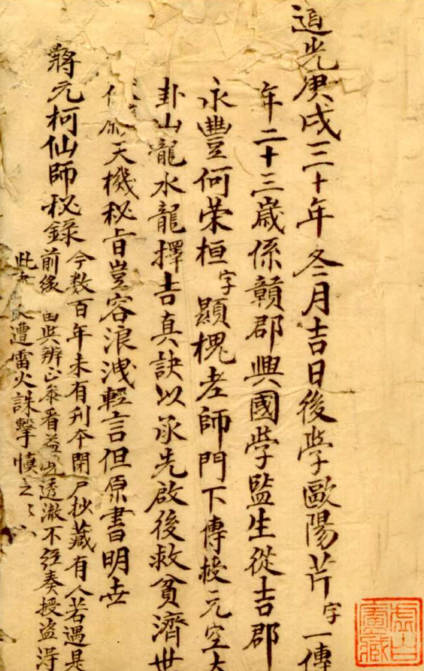 道光庚戌三十年冬月吉日後學歐陽芹字一傳
年二十三歲係贛郡興國學監生從吉郡
永豐何荣桓字顯槐老師門下傳授元空大
卦山龍水龍擇吉真訣以承先啟後救貧濟世
天機秘旨豈容浪洩輕言但原書明世
蔣元柯仙師秘錄
今数百年未有刊本閉戶抄藏有人若遇是
前後 與辨正叅看 透澈不経奏授盗淂
此 遭雷火誅擊慎之